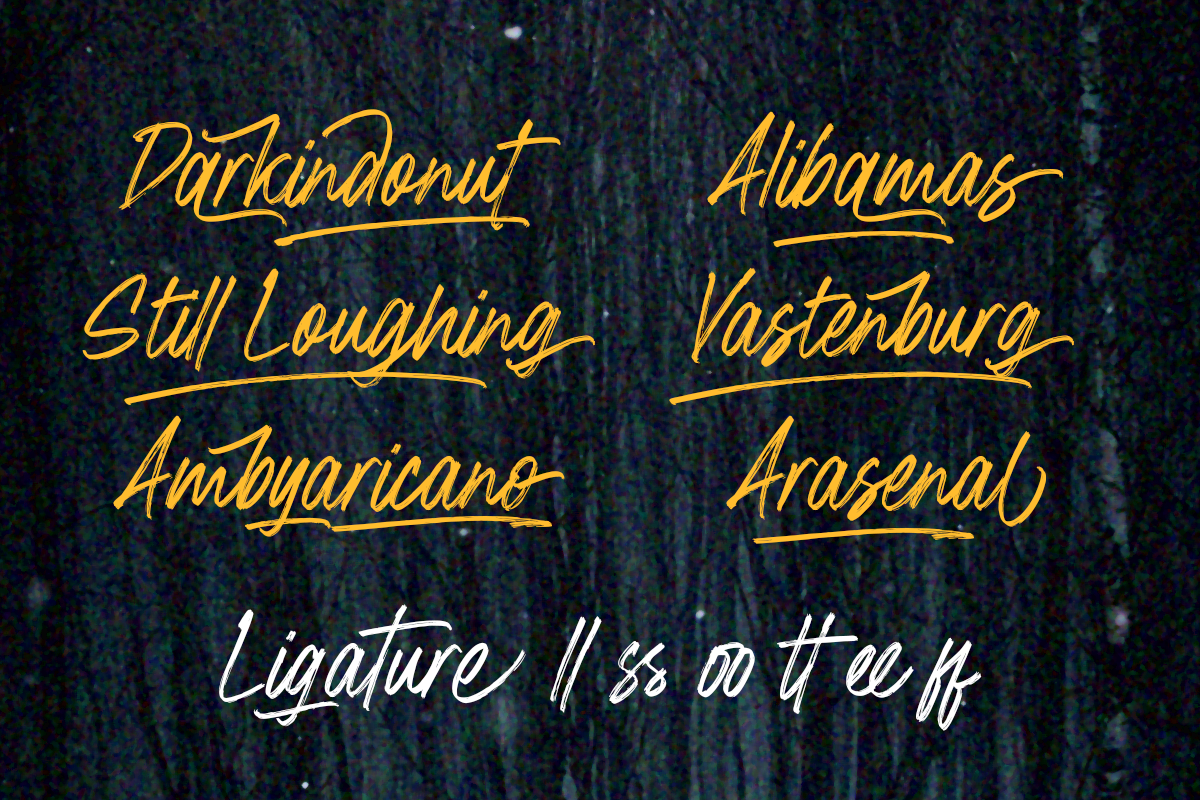 Darkindonut Alibamas
Still Loughing Vastenburg
Ambyaricano Arasenal
Ligature ll ss oo tt ee ff